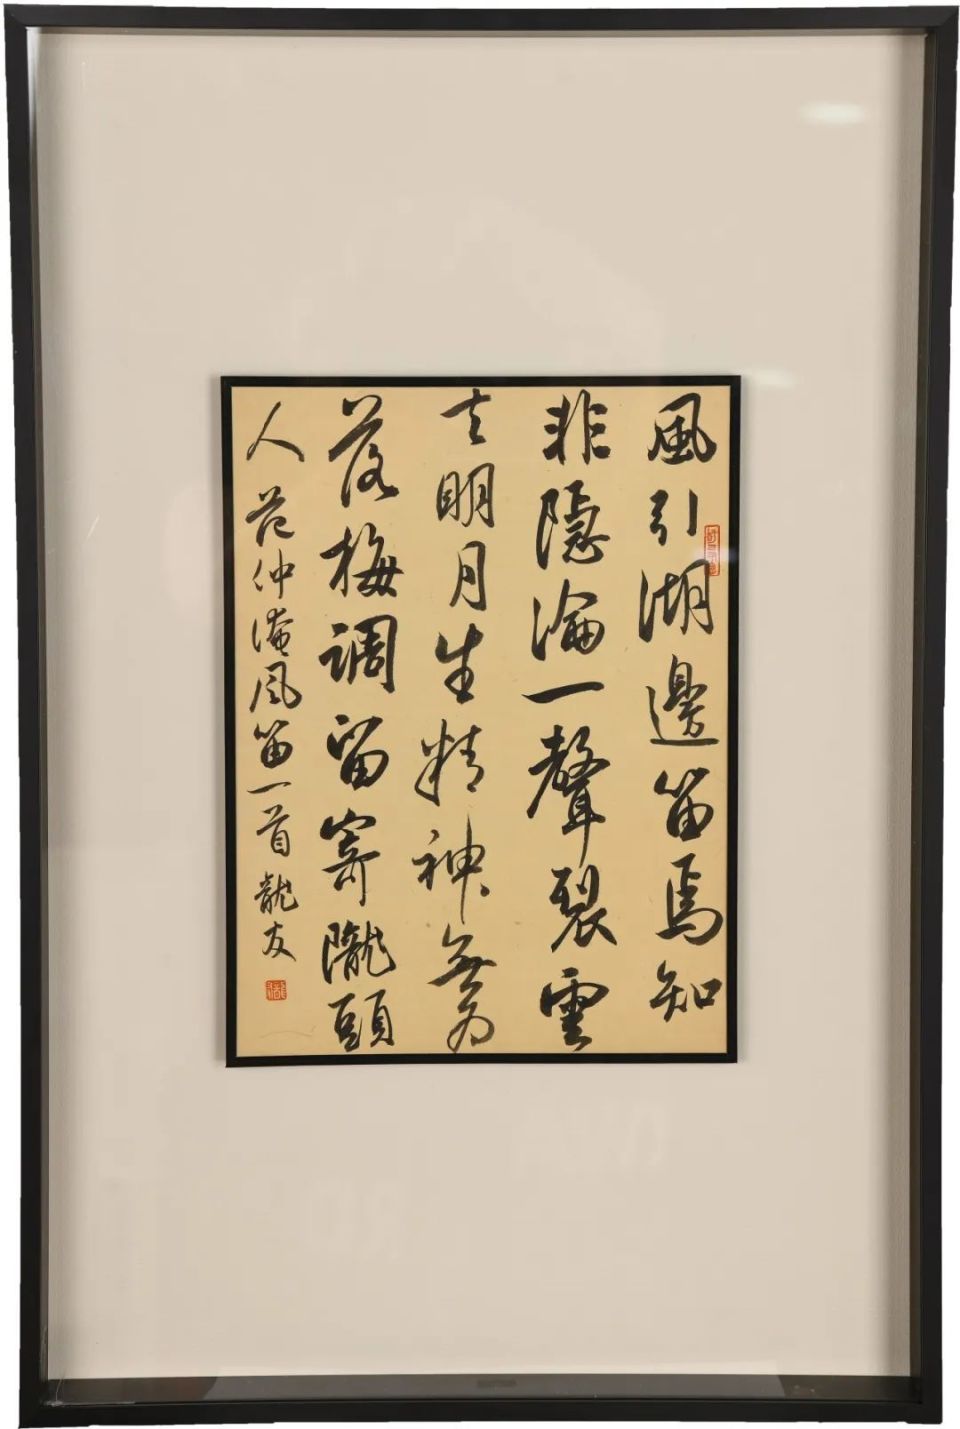 風引湖邊笛焉知
非隱淪一聲裂雲
去明月生精神無為
落梅調留寄隴頭
人 范仲淹風笛一首 龍友